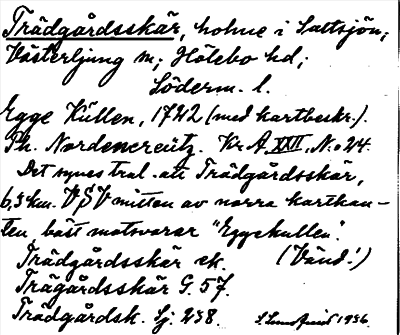 Trädgårdsskär, holme i Saltsjön;
Västerljung sn; Hölebo hd;
Söderm. l.
Egge Kullen, 1742 (med kartbeskr.).
Ph. Nordencreutz. Kr. A. XXII, No 24.
Det synes tral. att Trädgårdsskär,
6,3 km. VSV mitten av norra kartkan-
ten bäst motsvarar "Eggekullen".
Trädgårdsskär ek. (Vänd!)
Trägårdsskär G. 57.
Trädgårdsk. Sj. 238. 1936.